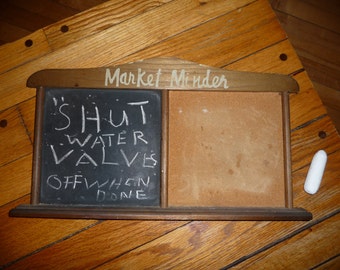 Market Minder
"SHUT
WATER
VALVES
OFF WHEN
DONE